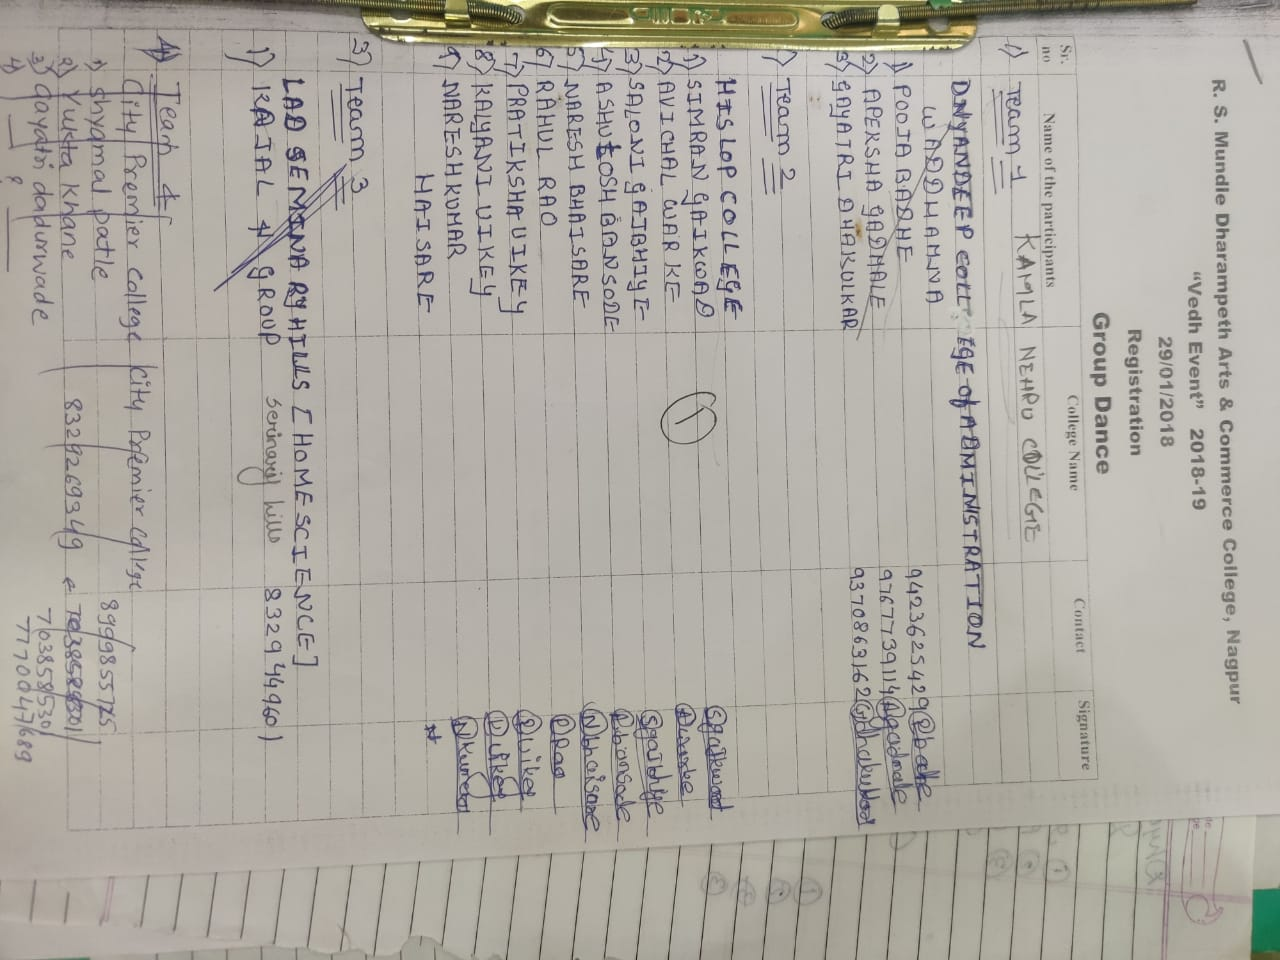 R. S. Mundle Dharampeth Arts & Commerce College, Nagpur
"Vedh Event" 2018-19
29/01/2018
Registration
Group Dance
Sr. no Name of the participants College Name Contact Signature
1) Team 1 KAMLA NEHRU COLLEGE
DNYANDEEP COLLEGE of ADMINISTRATION
WADDHAMNA
1) POOJA BADHE 9423625429
2) APEKSHA GADHALE 9767739114
3) GAYATRI DHAKULKAR 9370863162
Team 2
HISLOP COLLEGE
1) SIMRAN GAIKWAD Sgaikwad
2) AVICHAL WARKE 1
3) SALONI GAJBHIYE
4) ASHUTOSH BANSODE
5) NARESH BHAISARE Nbhaisare
6) RAHUL RAO RRao
7) PRATIKSHA UIKEY
8) KALYANI UIKEY
9) NARESHKUMAR
HAISARE
3) Team 3
LAD SEMINARY HILLS [HOME SCIENCE]
1) KAJAL + GROUP Seminary hills 8329449601
4) Team 4
City Premier college City Premier College
1) Shyamal patle 8999855725
2) Yukta Khane 8329269349
3) Gayatri dadurwade 7038585301
4) ? 7770047689